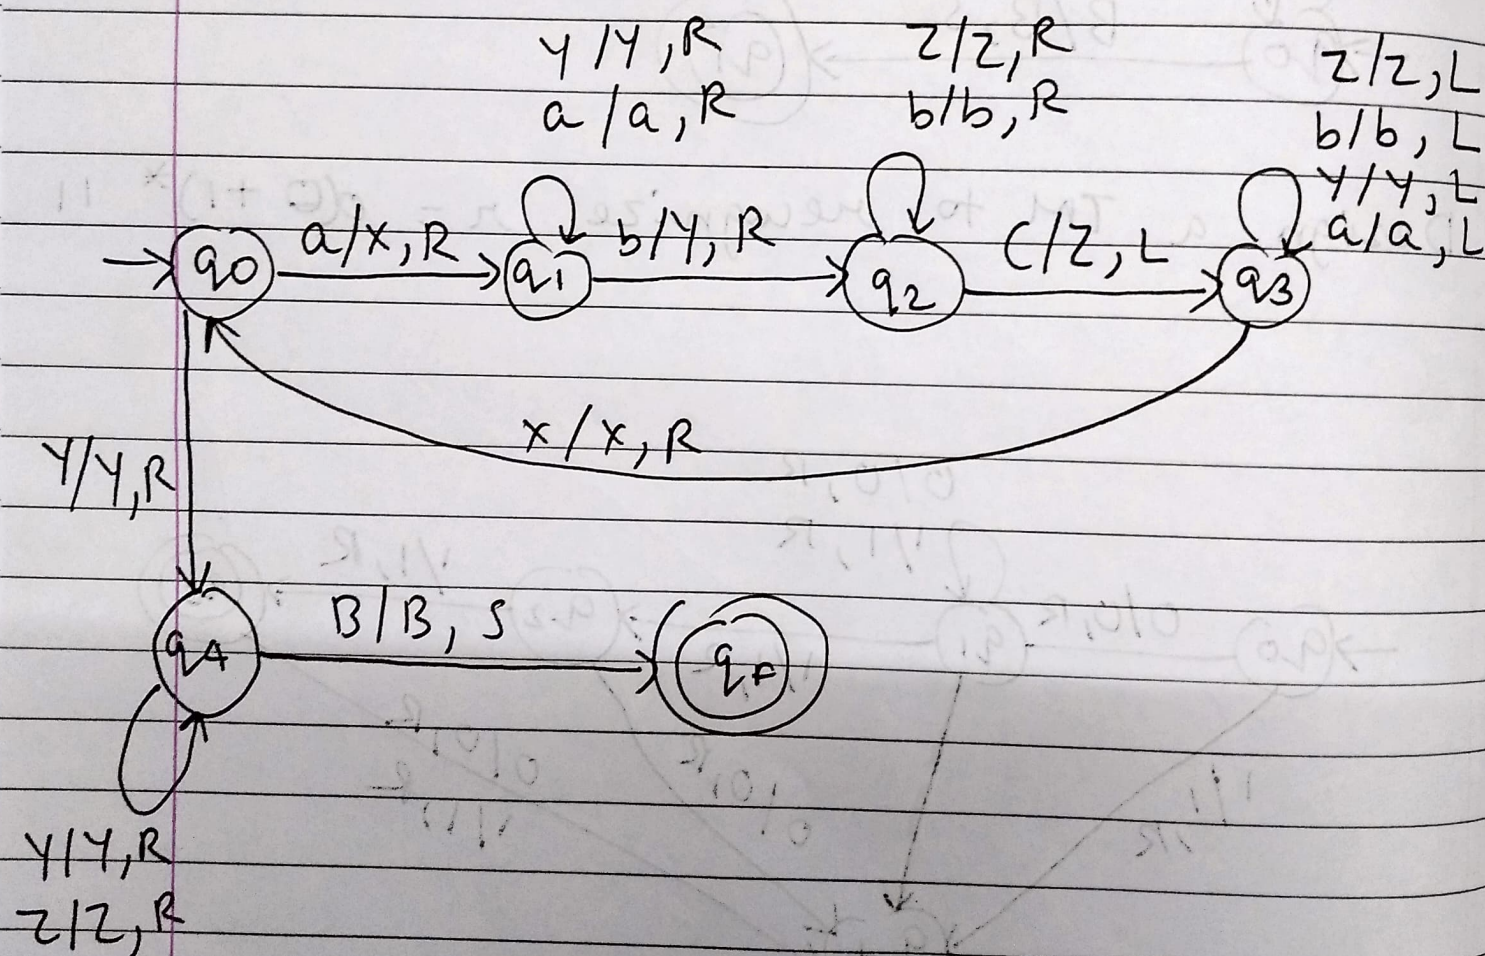 Y/Y, R
a/a, R
Z/Z, R
b/b, R
Z/Z, L
b/b, L
Y/Y, L
a/a, L
q0
a/X, R
q1
b/Y, R
q2
C/Z, L
q3
X/X, R
Y/Y, R
q4
B/B, S
qF
Y/Y, R
Z/Z, R